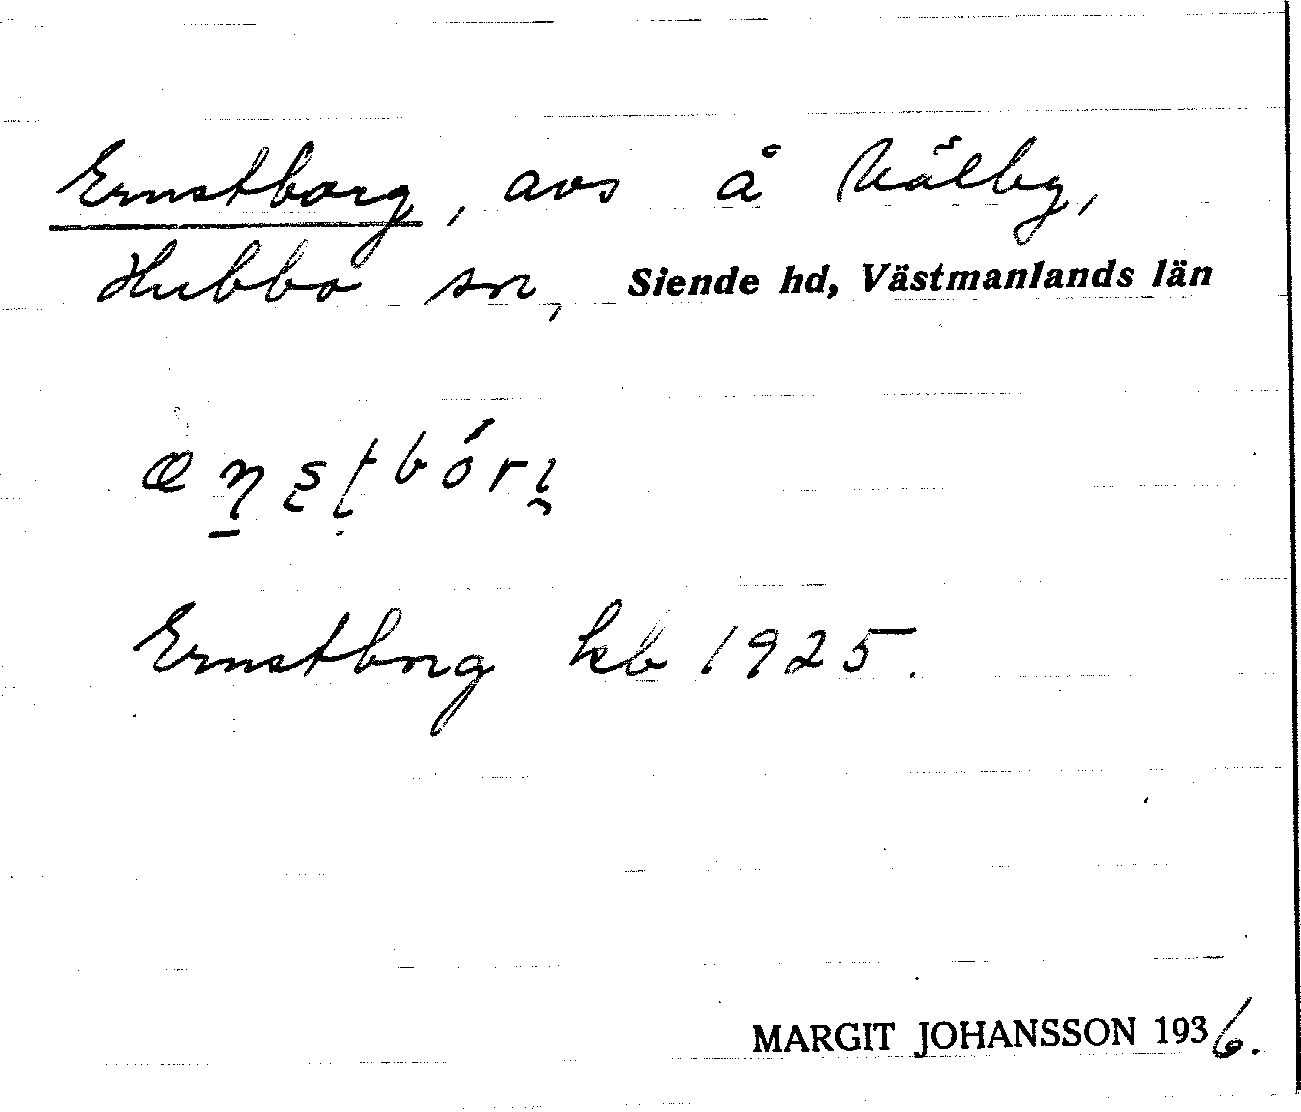 Ernstborg, avs å Kälby,
Hubbo sn, Siende hd, Västmanlands län
Ernstborg kb 1925.
MARGIT JOHANSSON 1936.